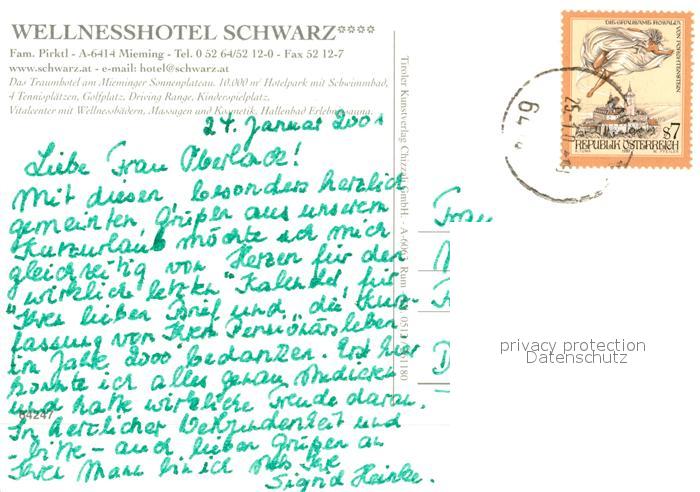 WELLNESSHOTEL SCHWARZ****
Fam. Pirktl - A-6414 Mieming - Tel. 0 52 64/52 12-0 - Fax 52 12-7
www.schwarz.at - e-mail: hotel@schwarz.at
Das Traumhotel am Mieminger Sonnenplateau. 10.000 m² Hotelpark mit Schwimmbad,
4 Tennisplätzen, Golfplatz, Driving Range, Kinderspielplatz,
Vitalcenter mit Wellnessbädern, Massagen und Kosmetik, Hallenbad Erlebnissauna.
24. Januar 2001
Liebe Frau Oberlack!
Mit diesen, besonders herzlich
gemeinten, Grüßen aus unserem
Kurzurlaub möchte ich mich
gleichzeitig von Herzen für den
"wirklich letzten" Kalender, für
Ihren lieben Brief und "die Kurz-
fassung von Ihrem Pensionärsleben
im Jahre 2000" bedanken. Erst hier
konnte ich alles genau studieren
und hatte wirkliche Freude daran.
In herzlicher Verbundenheit und
- bitte - auch lieben Grüßen an
Ihren Mann bin ich stets Ihre
Sigrid Heinke.
64247
Tiroler Kunstverlag Chizzali GmbH. - A-6063 Rum
Frau
DIE GRAUSAME ROSALIA
VON FORCHTENSTEIN
S7
REPUBLIK ÖSTERREICH
64
privacy protection
Datenschutz